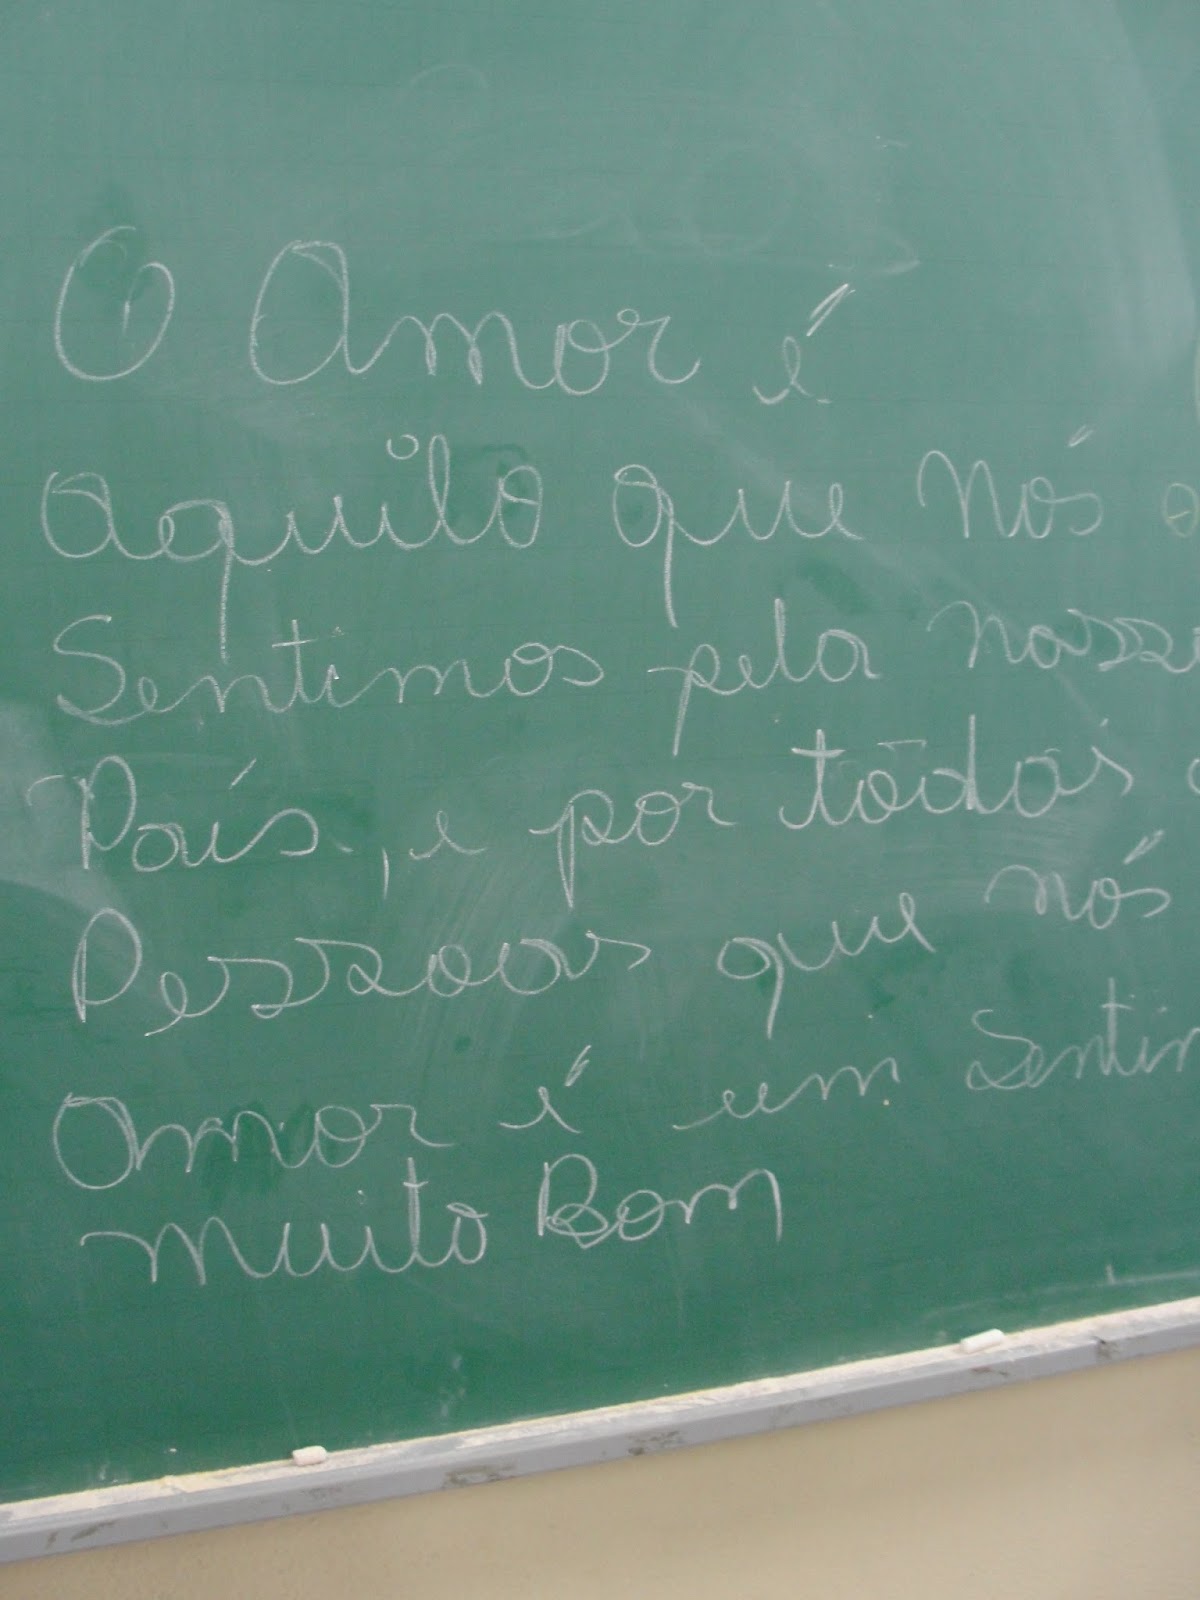 O Amor é
aquilo que nós
Sentimos pela nossa
País, e por todas
Pessoas que nós
amor é um Sentim
muito Bom